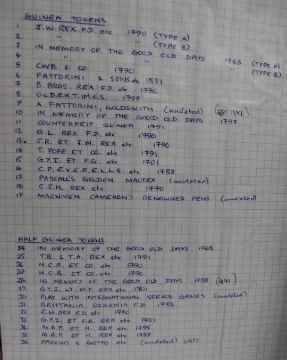 GUINEA TOKENS
1 J.W. REX F.D. etc 1790 (TYPE A)
2 " " (TYPE B)
3 IN MEMORY OF THE GOOD OLD DAYS 1768 (TYPE A)
4 " " (TYPE B)
5 CWB & CO. 1790
6 FATTORINI & SONS
7 B. BROS. REX F.D. etc 1790
8 O.L.D.E.N.T.I.M.E.S. 1797
9 A. FATTORINI, GOLDSMITH (undated)
10 IN MEMORY OF THE GOOD OLD DAYS 1797
11 COUNTERFEIT GUINEA 1791
12 G.L. REX F.D. etc 1790
J.R. ET J.W. REX etc 1790
14 T. POPE ET CO. etc 1791
15 G.Y.I. ET F.G. etc 1701
16 C.P.E.V.E.R.E.L.L.E. etc 1788
17 PASCALL'S GOLDEN MALTEX (undated)
18 C.J.H. REX etc 1770
19 MACNIVEN CAMERON'S RENOWNED PENS (undated)
HALF GUINEA TOKENS
24 IN MEMORY OF THE GOOD OLD DAYS 1768
25 T.B. & T.A. REX etc 1791
26 H.C.R. ET CO. etc 1790
27 W.C.B. ET CO. etc 1790
28 IN MEMORY OF THE GOOD OLD DAYS 1788
G.Y.I. ET G.F. REX etc 1701
30 PLAY WITH INTERNATIONAL SERIES GAMES (undated)
31 BRITTANIA REGENIA F.D. 1788
REX F.D. etc 1790
33 G.Y.I. ET F.G. REX etc 1701
REX etc 1795
ET H. REX etc
36 PARKINS & GOTTO etc (undated)